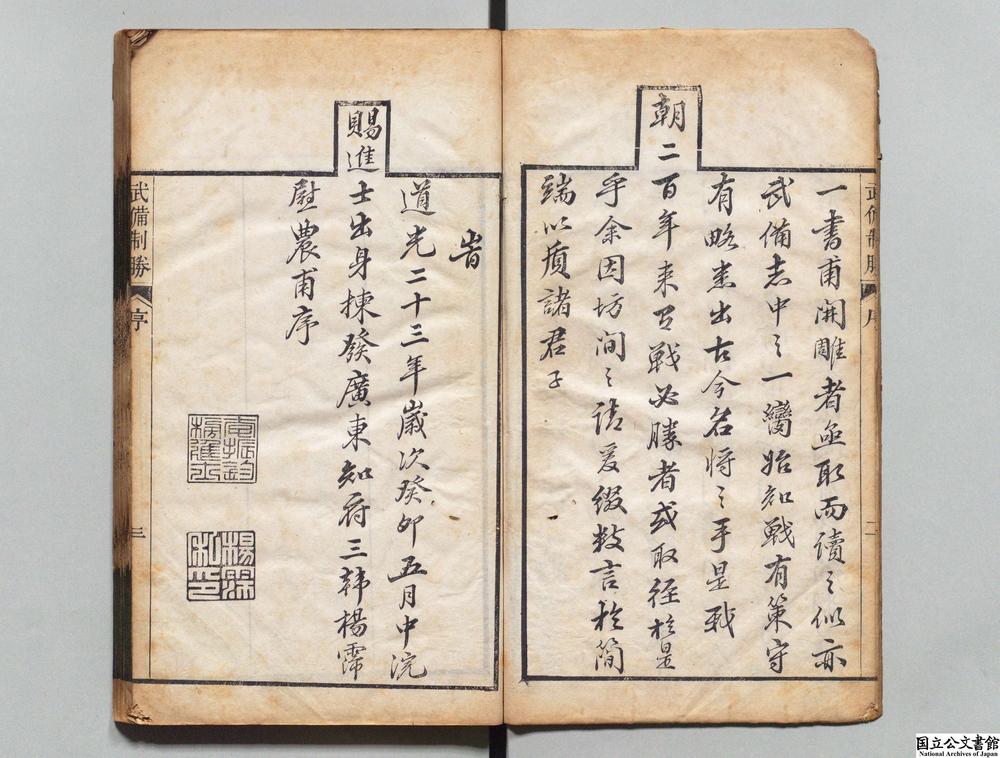 武備制勝 序 二
一書甫開雕者亟取而讀之似亦
武備志中之一臠始知戰有策守
有略悉出古今名將之手是我
朝二百年来戰必勝者或取徑於是
乎余因坊間之請爰綴數言於簡
端以質諸君子
旹
道光二十三年歲次癸卯五月中浣
賜進士出身揀發廣東知府三韓楊霈
慰農甫序
楊霈私印
武備制勝 序 三
国立公文書館
National Archives of Japan